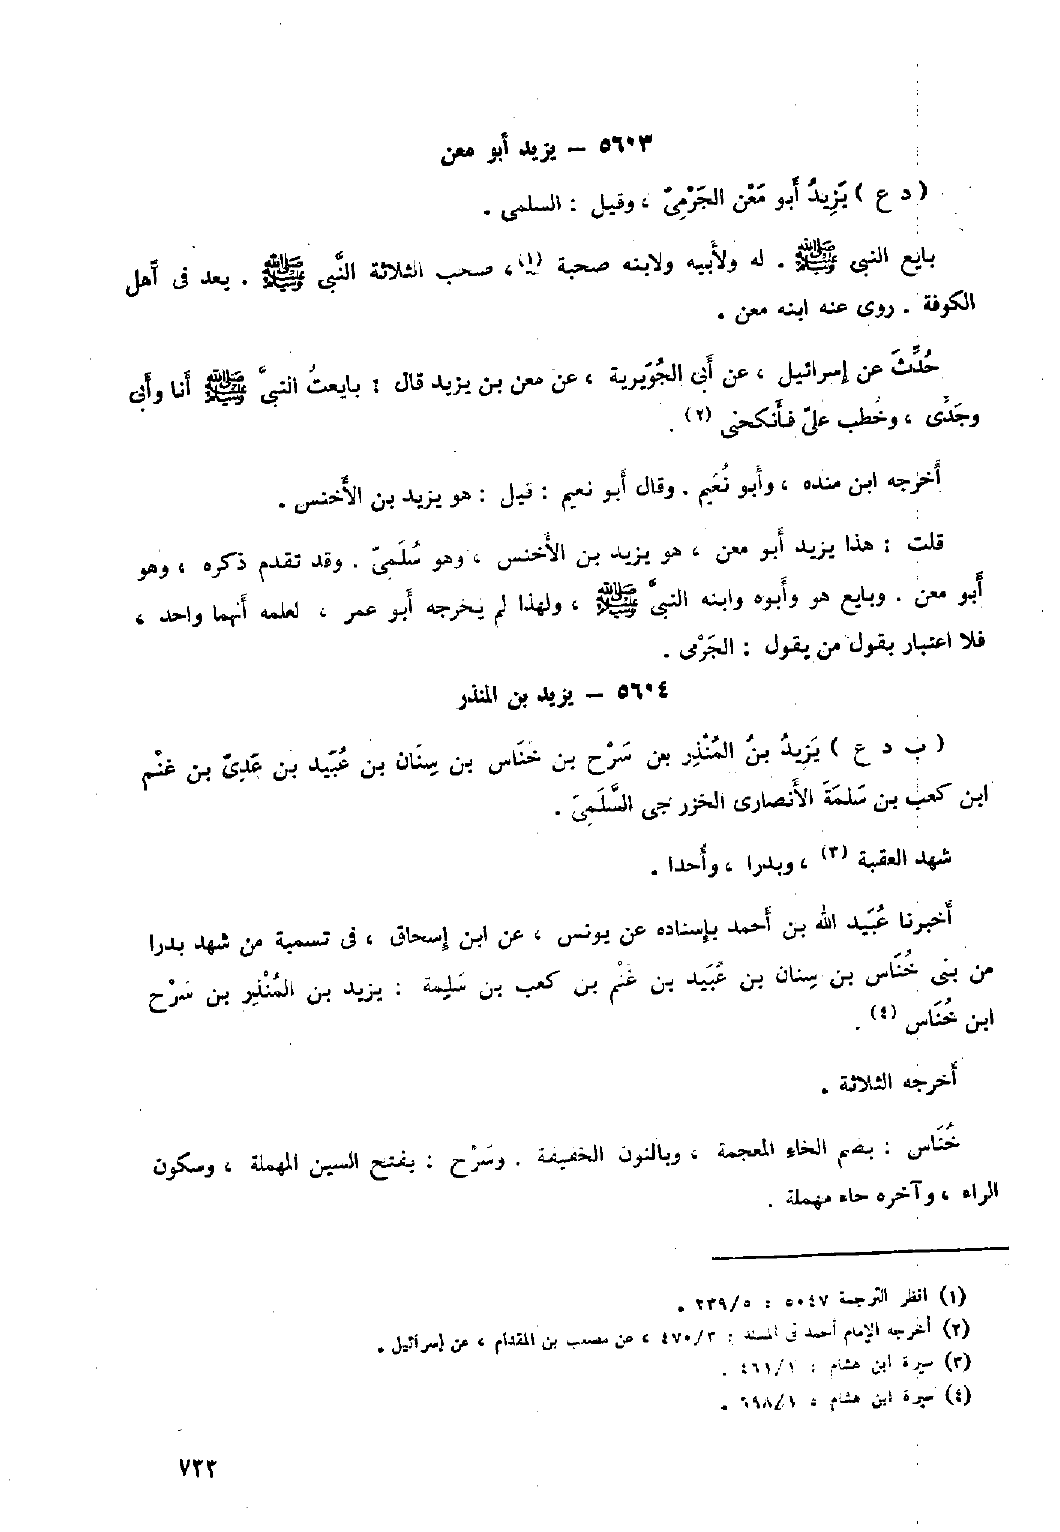 ٥٦٠٣ – يزيد أبو معن
( د ع ) يَزِيدُ أَبو مَعْن الجَرْمِىّ ، وقيل : السلمى .
بايع النبى ﷺ . له ولأَبيه ولابنه صحبة (١) ، صحب الثلاثة النَّبى ﷺ . يعد فى أَهل
الكوفة . روى عنه ابنه معن .
حُدِّثَ عن إسرائيل ، عن أَبى الجُوَيرية ، عن معن بن يزيد قال : بايعتُ النبىَّ ﷺ أَنا وأَبى
وجَدِّى ، وخُطب علىّ فأَنكحنى (٢) .
أَخرجه ابن منده ، وأَبو نُعَيم . وقال أَبو نعيم : قيل : هو يزيد بن الأَخنس .
قلت : هذا يزيد أَبو معن ، هو يزيد بن الأَخنس ، وهو سُلَمىّ . وقد تقدم ذكره ، وهو
أَبو معن . وبايع هو وأَبوه وابنه النبىَّ ﷺ ، ولهذا لم يخرجه أَبو عمر ، لعلمه أَنهما واحد ،
فلا اعتبار بقول من يقول : الجَرْمى .
٥٦٠٤ – يزيد بن المنذر
( ب د ع ) يَزِيدُ بنُ المُنْذِر بن سَرْح بن خنَاس بن سِنَان بن عُبَيد بن عَدِىّ بن غنْم
ابن كعب بن سَلمَةَ الأَنصارى الخزرجى السَّلَمِىّ .
شهد العقبة (٣) ، وبدرا ، وأُحدا .
أَخبرنا عُبَيد الله بن أَحمد بإسناده عن يونس ، عن ابن إسحاق ، فى تسمية من شهد بدرا
من بنى خُنَاس بن سِنان بن عُبَيد بن غَنْم بن كعب بن سَلِمة : يزيد بن المُنْذِر بن سَرْح
ابن خُنَاس (٤) .
أَخرجه الثلاثة .
خُنَاس : بضم الخاءِ المعجمة ، وبالنون الخفيفة . وسَرْح : بفتح السين المهملة ، وسكون
الراء ، وآخره حاء مهملة .
(١) انظر الترجمة ٥٠٤٧ : ٢٣٩/٥ .
(٢) أخرجه الإمام أحمد فى المسند : ٤٧٠/٣ ، عن مصعب بن المقدام ، عن إسرائيل .
(٣) سيرة ابن هشام : ٤٦١/١ .
(٤) سيرة ابن هشام : ٦٩٨/١ .
٧٣٣